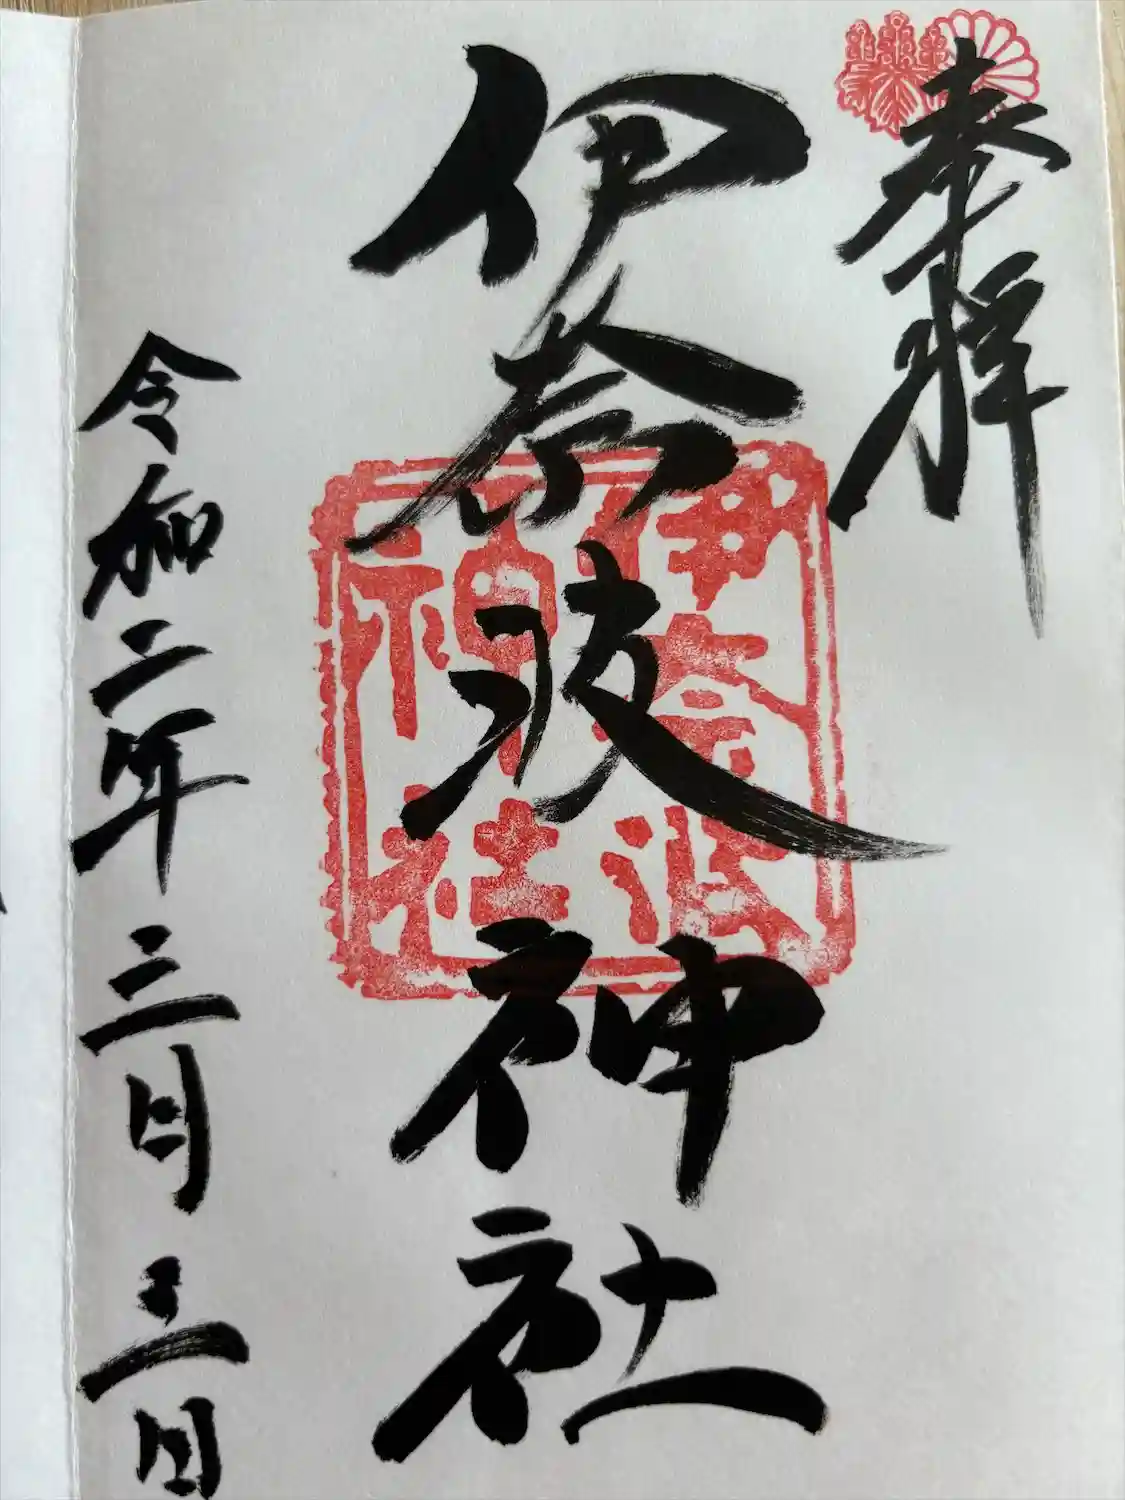 奉拝
伊奈波神社
伊奈波
神社
令和二年三月三日